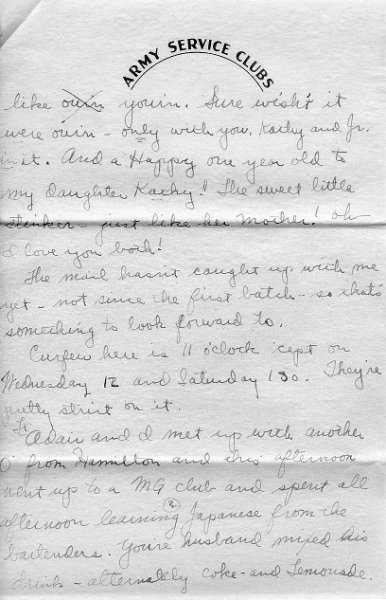 ARMY SERVICE CLUBS
like ouin youin. Sure wish't it
were ouin - only with you, Kathy and Jr.
in it. And a Happy one year old to
my daughter Kathy! The sweet little
stinker - just like her Mother! Oh
I love you both!
The mail hasn't caught up with me
yet - not since the first batch - so that's
something to look forward to.
Curfew here is 11 o'clock 'cept on
Wednesday 12 and Saturday 1 30. They're
pretty strict on it.
Lt Adair and I met up with another
O' from Hamilton and this afternoon
went up to a MG club and spent all
afternoon learning Japanese from the
bartenders. You're husband mixed his
drink - alternately coke and Lemonade.